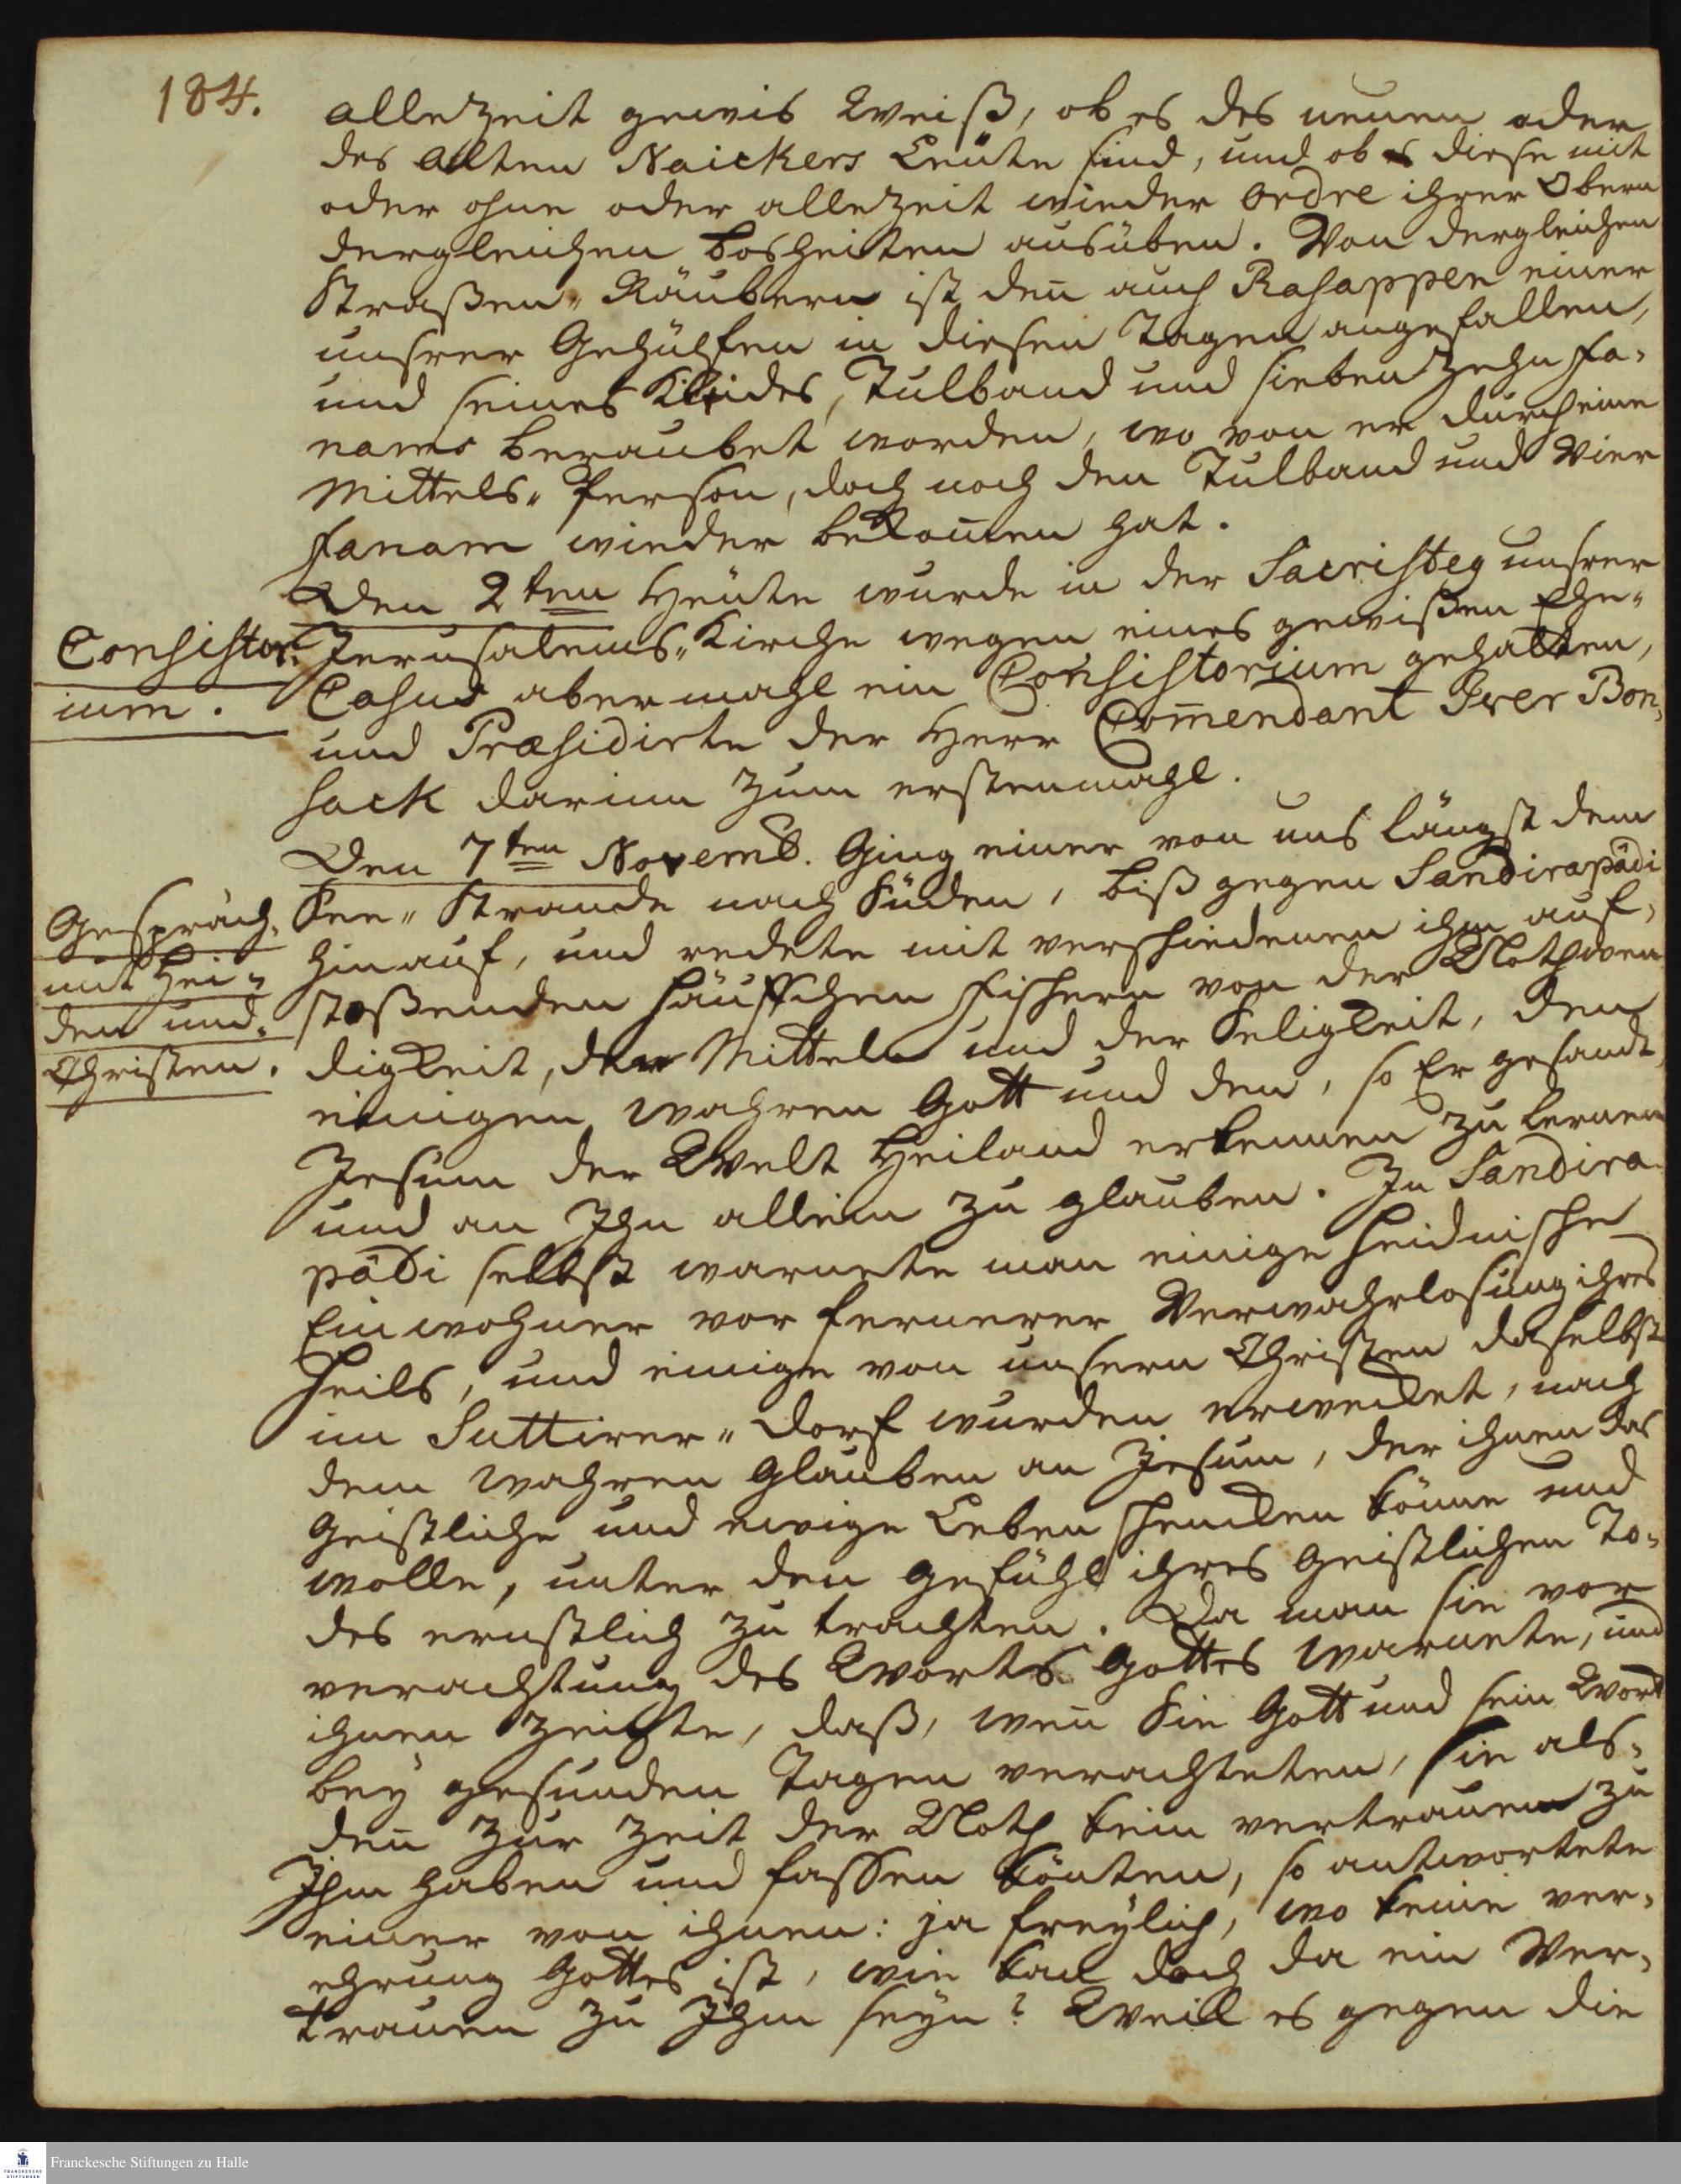 184.
allezeit gewis Weiß, ob es des neuen oder
des alten Naickers Leute sind, und ob es diese mit
oder ohne oder allezeit wieder ordre ihrer Obern
dergleichen bosheiten ausüben. Von dergleichen
Straßen-Räubern ist den̄ auch Rasappen einer
unsrer Gehülfen in diesen Tagen angefallen,
und seines Kleides, Tulband und siebenzehn fa-
nams beraubet worden, wo von er durch eine
Mittels-Person, doch noch den Tulband und Vier
fanam wieder bekom̄en hat.
Den 2ten Heute wurde in der Sacristey unsrer
Jerusalems-Kirche wegen eines gewißen Ehe-
Casus abermahl ein Consistorium gehalten,
und Præsidirte der Herr Com̄endant Iver Bon-
sack darinn zum erstenmahl.
Consistor-
ium.
Den 7ten Novemb. Ging einer von uns längst dem
See-Strande nach Süden, biß gegen Sandirapädi
hinauf, und redete mit verschiedenen ihm auf-
stoßenden häuffchen fischern von der Nothwen
digkeit, der Mitteln und der Seligkeit, den
einigen wahren Gott und den, so Er gesandt,
Jesum der Welt Heiland erkennen zu lernen
und an Ihn allein zu glauben. In Sandira-
pädi selbst warnete man einige heidnische
Einwohner vor fernerer Verwahrlosung ihres
Heils, und einige von unsern Christen daselbst
im Suttirer-Dorf wurden erwecket, nach
dem wahren Glauben an Jesum, der ihnen das
Geistliche und ewige Leben schencken könne und
wolle, unter den Gefühl ihres Geistlichen To-
des ernstlich zu trachten. Da man sie vor
verachtung des Worts Gottes warnete, und
ihnen zeigte, daß, wen̄ Sie Gott und sein Wort
bey gesunden Tagen verachteten, sie als-
den̄ zur Zeit der Noth kein vertrauen zu
Ihm haben und fassen könten, so antwortete
einer von ihnen: ja freylich, wo keine ver-
ehrung Gottes ist, wie kan doch da ein Ver-
trauen zu Ihm seyn? Weil es gegen die
Gespräch
mit Hei-
den und
Christen.
Franckesche Stiftungen zu Halle
FRANCKESCHE
STIFTUNGEN